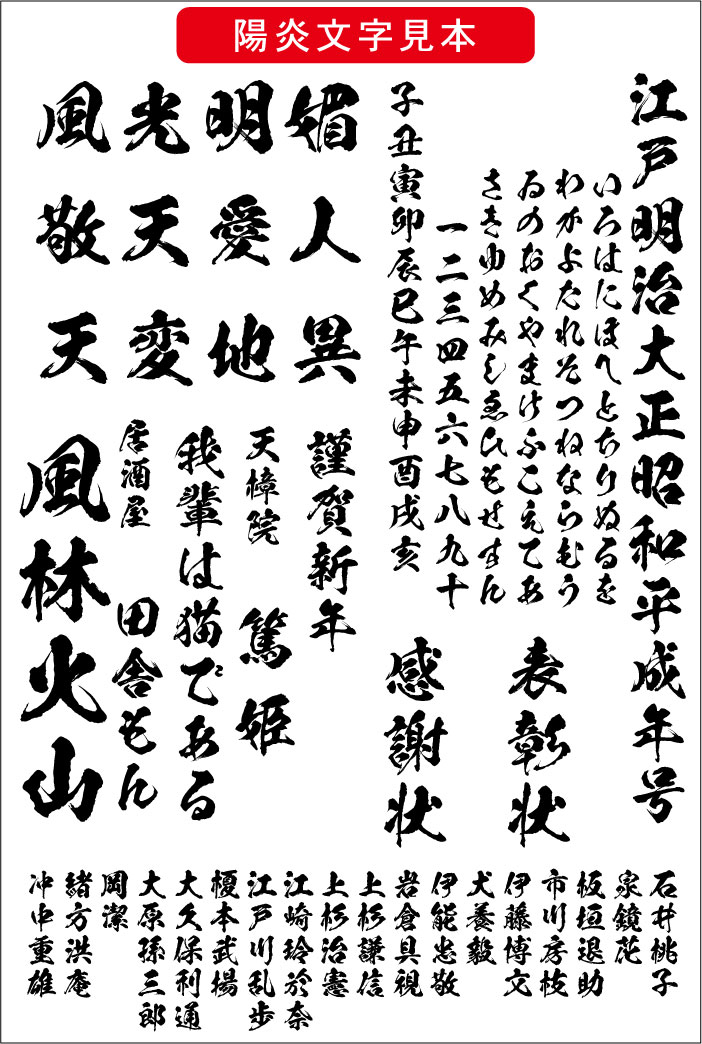 陽炎文字見本
江戸明治大正昭和平成年号
いろはにほへとちりぬるを
わかよたれそつねならむう
ゐのおくやまけふこえてあ
さきゆめみしゑひもせすん
一二三四五六七八九十
子丑寅卯辰巳午未申酉戌亥
表彰状
感謝状
媚人異
明愛地
光天変
風敬天
謹賀新年
天樟院
篤姫
我輩は猫である
居酒屋
田舎もん
風林火山
石井桃子
泉鏡花
板垣退助
市川房枝
伊藤博文
犬養毅
伊能忠敬
岩倉具視
上杉謙信
上杉治憲
江崎玲於奈
江戸川乱歩
榎本武揚
大久保利通
大原孫三郎
岡潔
緒方洪庵
冲中重雄